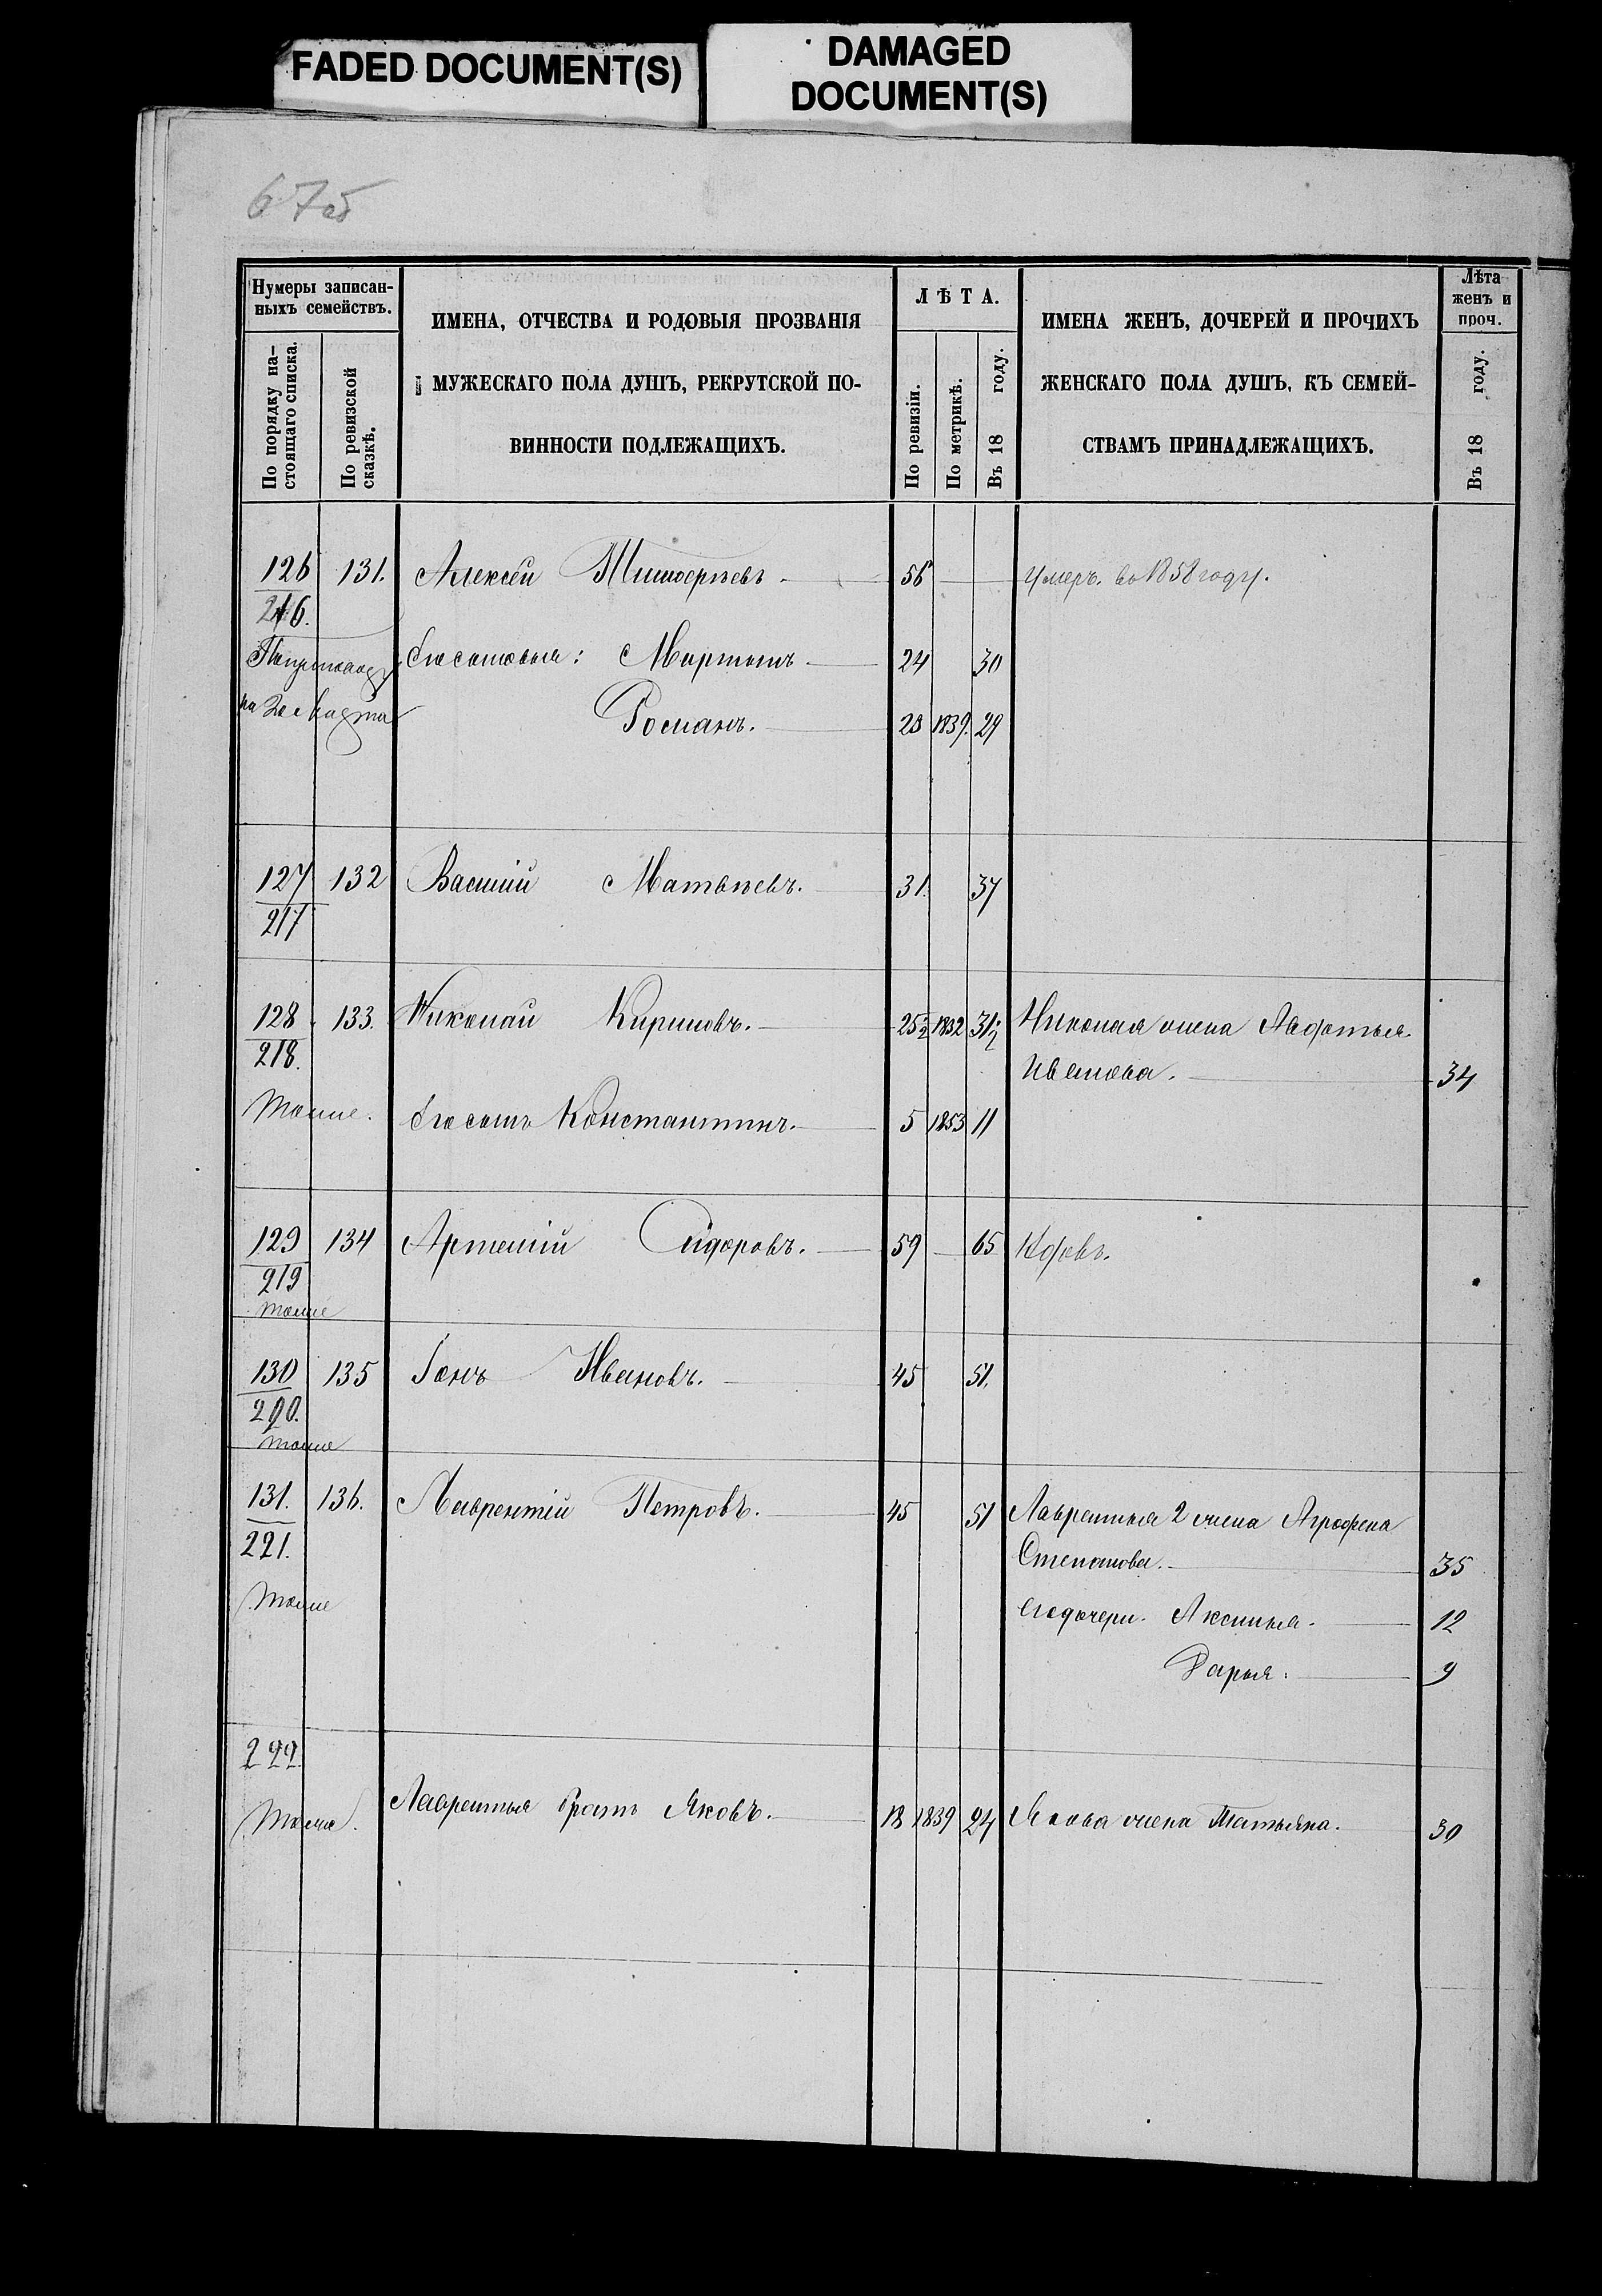 FADED DOCUMENT(S)
DAMAGED
DOCUMENT(S)
67об
Нумеры записан-
ныхъ семействъ.
По порядку на-
стоящаго списка.
По ревизской
сказкѣ.
ИМЕНА, ОТЧЕСТВА И РОДОВЫЯ ПРОЗВАНІЯ
МУЖЕСКАГО ПОЛА ДУШЪ, РЕКРУТСКОЙ ПО-
ВИННОСТИ ПОДЛЕЖАЩИХЪ.
ЛѢТА.
По ревизіи.
По метрикѣ.
Въ 18 году.
ИМЕНА ЖЕНЪ, ДОЧЕРЕЙ И ПРОЧИХЪ
ЖЕНСКАГО ПОЛА ДУШЪ, КЪ СЕМЕЙ-
СТВАМЪ ПРИНАДЛЕЖАЩИХЪ.
Лѣта
женъ и
проч.
Въ 18 году.
126 131. Алексѣй 56 умеръ. во 1858 году.
216.
Его сыновья: Мартынъ 24 30
Романъ. 23 1839. 29
127 132 Василій Матвѣевъ. 31. 37
217
128 133. Николай Кириловъ. 25½ 1832 31½ Николая жена Авдотья
218. Иванова. 34
Тоже. Его сынъ Константинъ. 5 1853 11
129 134 Артемій Сидоровъ. 59 65 Вдовъ.
219
Тоже
130 135 Іонъ Ивановъ. 45 51.
220.
Тоже
131. 136. Лаврентій Петровъ. 45 51 Лаврентья 2 жена Аграфена
221. Степанова. 35
Тоже Его дочери. Аксинья. 12
Дарья. 9
222.
Тоже. Лаврентья братъ Яковъ. 18 1839 24 Якова жена Татьяна. 30